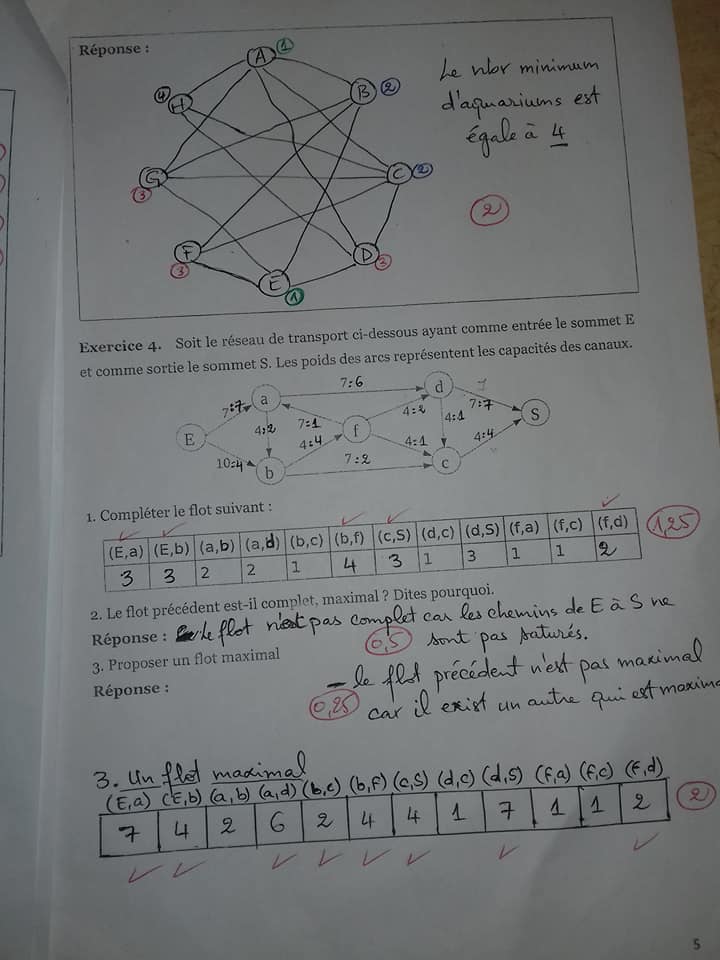 Réponse :
A 1
B 2
4 H
C 2
G 3
F 3
D 3
E 1
Le nbr minimum
d'aquariums est
égale à 4
2
Exercice 4. Soit le réseau de transport ci-dessous ayant comme entrée le sommet E
et comme sortie le sommet S. Les poids des arcs représentent les capacités des canaux.
7:6
7:7 a d 7:7
4:2 7:1 4:2 4:1
E f S
4:4 4:1 4:4
10:4 b 7:2 c
1. Compléter le flot suivant :
(E,a) (E,b) (a,b) (a,d) (b,c) (b,f) (c,S) (d,c) (d,S) (f,a) (f,c) (f,d)
3 3 2 2 1 4 3 1 3 1 1 2
1,25
2. Le flot précédent est-il complet, maximal ? Dites pourquoi.
Réponse : Le flot n'est pas complet car les chemins de E à S ne
sont pas saturés.
0,5
3. Proposer un flot maximal
Réponse :
- le flot précédent n'est pas maximal
0,25
car il exist un autre qui est maxima
3. Un flot maximal
(E,a) (E,b) (a,b) (a,d) (b,c) (b,f) (c,S) (d,c) (d,S) (f,a) (f,c) (f,d)
7 4 2 6 2 4 4 1 7 1 1 2
2
5